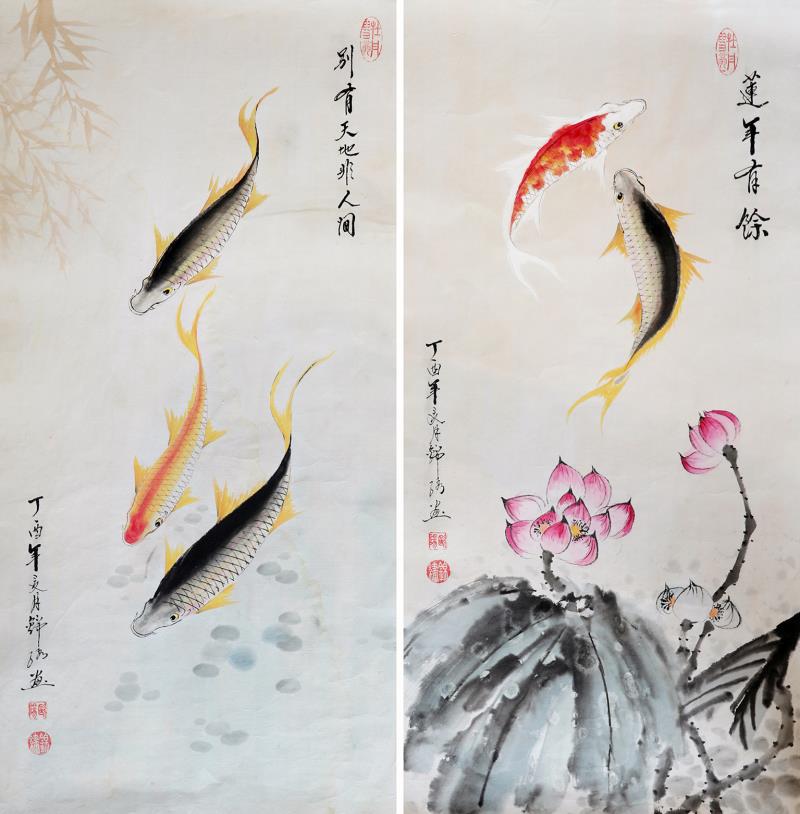 别有天地非人间
丁酉年夏月锦
画
莲年有馀
丁酉年夏月锦
画